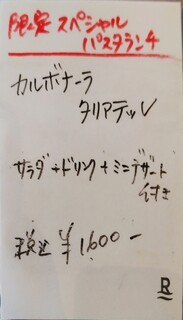 限定スペシャル
パスタランチ
カルボナーラ
タリアテッレ
サラダ+ドリンク+ミニデザート
付き
税込 ¥1600-
R